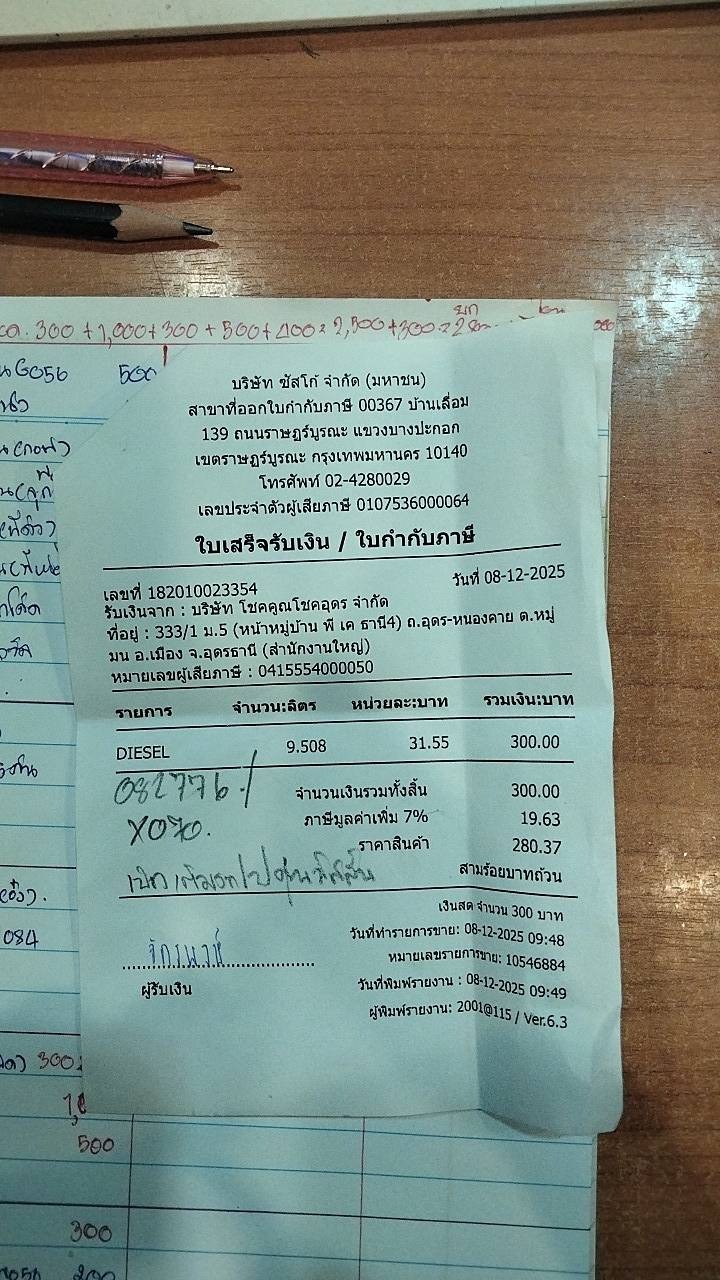 300 + 1,000 + 300 + 500 + 400 = 2,500 + 300 =
500
บริษัท ซัสโก้ จำกัด (มหาชน)
สาขาที่ออกใบกำกับภาษี 00367 บ้านเลื่อม
139 ถนนราษฎร์บูรณะ แขวงบางปะกอก
เขตราษฎร์บูรณะ กรุงเทพมหานคร 10140
โทรศัพท์ 02-4280029
เลขประจำตัวผู้เสียภาษี 0107536000064
ใบเสร็จรับเงิน / ใบกำกับภาษี
เลขที่ 182010023354 วันที่ 08-12-2025
รับเงินจาก : บริษัท โชคคูณโชคอุดร จำกัด
ที่อยู่ : 333/1 ม.5 (หน้าหมู่บ้าน พี เค ธานี4) ถ.อุดร-หนองคาย ต.หมู
มน อ.เมือง จ.อุดรธานี (สำนักงานใหญ่)
หมายเลขผู้เสียภาษี : 0415554000050
รายการ จำนวน:ลิตร หน่วยละ:บาท รวมเงิน:บาท
DIESEL 9.508 31.55 300.00
082776
จำนวนเงินรวมทั้งสิ้น 300.00
X070.
ภาษีมูลค่าเพิ่ม 7% 19.63
ราคาสินค้า 280.37
สามร้อยบาทถ้วน
เงินสด จำนวน 300 บาท
วันที่ทำรายการขาย: 08-12-2025 09:48
หมายเลขรายการขาย: 10546884
ผู้รับเงิน
วันที่พิมพ์รายงาน : 08-12-2025 09:49
ผู้พิมพ์รายงาน: 2001@115 / Ver.6.3
084
300
500
300
200